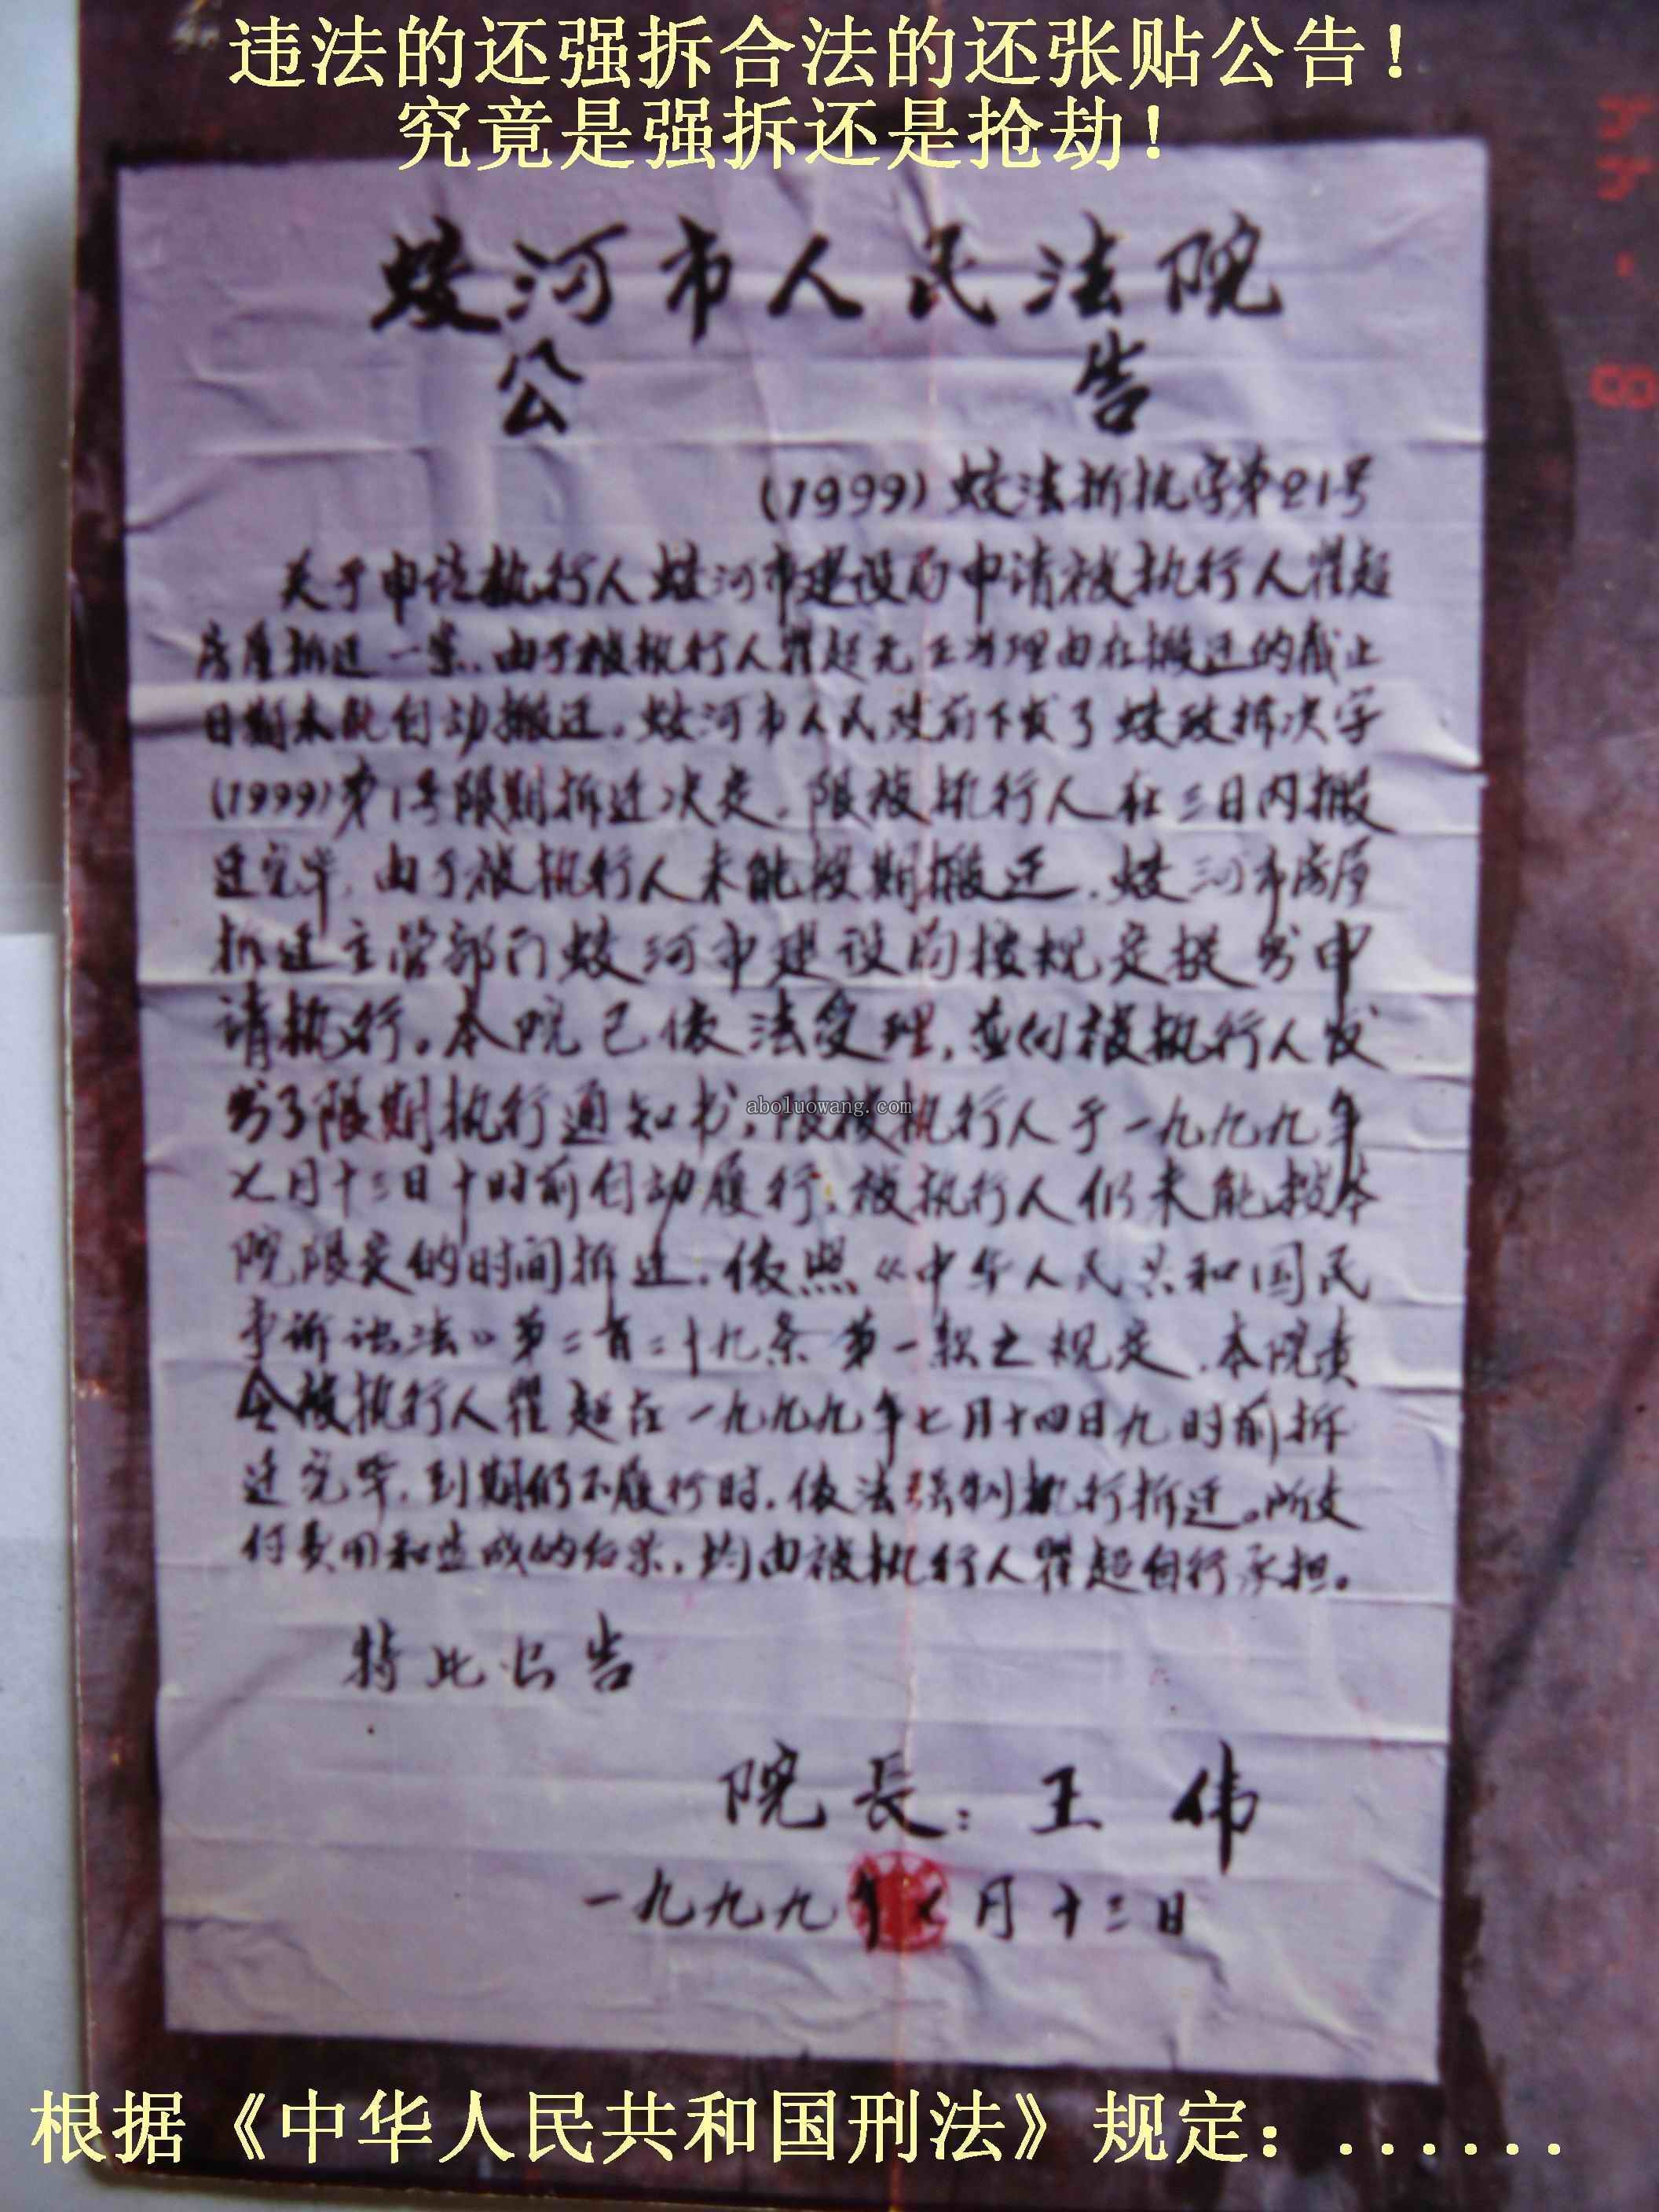 违法的还强拆合法的还张贴公告！
究竟是强拆还是抢劫！
蛟河市人民法院
公 告
(1999)蛟法拆执字第21号
关于申请执行人蛟河市建设局申请被执行人瞿超
房屋拆迁一案，由于被执行人瞿超无正当理由在搬迁的截止
日期未能自动搬迁。蛟河市人民政府下发了蛟政拆决字
(1999)第1号限期拆迁决定。限被执行人在三日内搬
迁完毕，由于被执行人未能按期搬迁，蛟河市房屋
拆迁主管部门蛟河市建设局按规定提出申
请执行。本院已依法受理，并向被执行人发
出了限期执行通知书，限被执行人于一九九九年
七月十三日十时前自动履行，被执行人仍未能按本
院限定的时间拆迁。依照《中华人民共和国民
事诉讼法》第二百二十九条第一款之规定，本院责
令被执行人瞿超在一九九九年七月十四日九时前拆
迁完毕，到期仍不履行时，依法强制执行拆迁。所支
付费用和造成的后果，均由被执行人瞿超自行承担。
特此公告
院長：王 伟
一九九九年七月十三日
aboluowang.com
根据《中华人民共和国刑法》规定：......